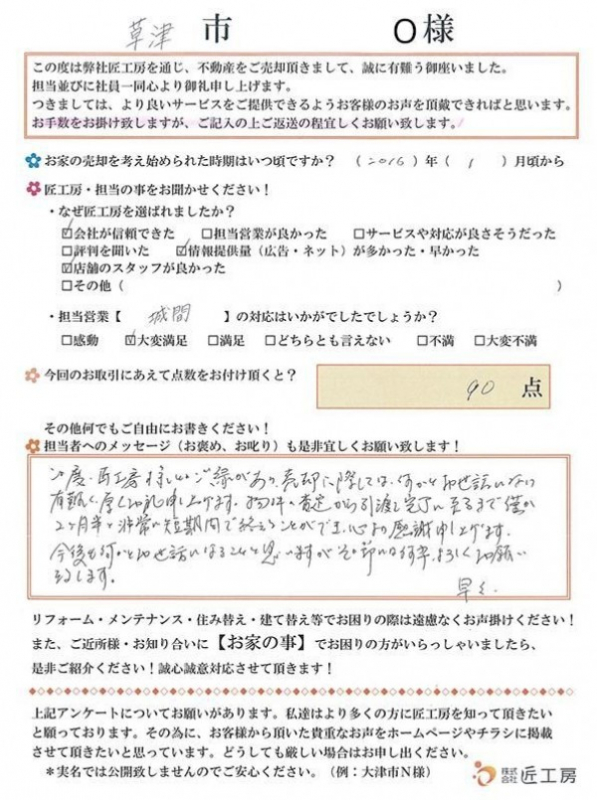 草津 市 O様
この度は弊社匠工房を通じ、不動産をご売却頂きまして、誠に有難う御座いました。
担当並びに社員一同心より御礼申し上げます。
つきましては、より良いサービスをご提供できるようお客様のお声を頂戴できればと思います。
お手数をお掛け致しますが、ご記入の上ご返送の程宜しくお願い致します。
お家の売却を考え始められた時期はいつ頃ですか？（2016）年（1）月頃から
匠工房・担当の事をお聞かせください！
・なぜ匠工房を選ばれましたか？
☑会社が信頼できた □担当営業が良かった □サービスや対応が良さそうだった
□評判を聞いた ☑情報提供量（広告・ネット）が多かった・早かった
☑店舗のスタッフが良かった
□その他（ ）
・担当営業【 城間 】の対応はいかがでしたでしょうか？
□感動 ☑大変満足 □満足 □どちらとも言えない □不満 □大変不満
今回のお取引にあえて点数をお付け頂くと？ 90 点
その他何でもご自由にお書きください！
担当者へのメッセージ（お褒め、お叱り）も是非宜しくお願い致します！
この度、匠工房様とのご縁があり、売却に際しては、何かとお世話になり
有難く厚くお礼申し上げます。物件の査定から引渡し完了に至るまで僅か
2ヶ月半と非常に短期間で終えることができ、心より感謝申し上げます。
今後も何かとお世話になることと思いますがその節は何卒よろしくお願い
致します。
早々
リフォーム・メンテナンス・住み替え・建て替え等でお困りの際は遠慮なくお声掛けください！
また、ご近所様・お知り合いに【お家の事】でお困りの方がいらっしゃいましたら、
是非ご紹介ください！誠心誠意対応させて頂きます！
上記アンケートについてお願いがあります。私達はより多くの方に匠工房を知って頂きたい
と願っております。その為に、お客様から頂いた貴重なお声をホームページやチラシに掲載
させて頂きたいと思っています。どうしても厳しい場合はお申し出ください。
＊実名では公開致しませんのでご安心ください。（例：大津市N様）
株式会社 匠工房